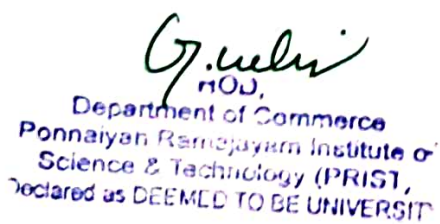 HOD,
Department of Commerce
Ponnaiyah Ramajayam Institute of
Science & Technology (PRIST,
Declared as DEEMED TO BE UNIVERSIT